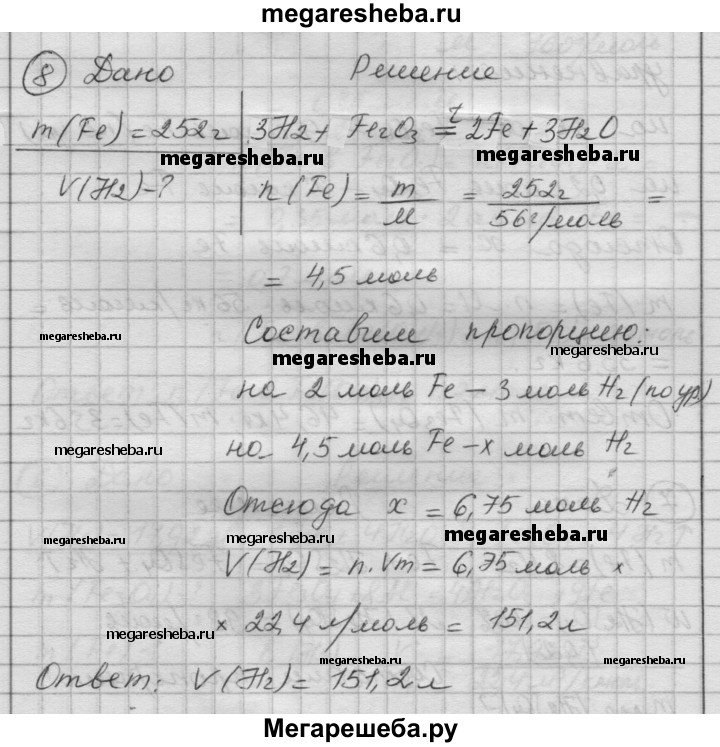 megaresheba.ru
8 Дано Решение
m(Fe) = 252г 3H2 + Fe2O3 t= 2Fe + 3H2O
megaresheba.ru megaresheba.ru
V(H2) - ? n(Fe) = m/M = 252г/56г/моль =
= 4,5 моль
Составим пропорцию:
megaresheba.ru megaresheba.ru megaresheba.ru
на 2 моль Fe – 3 моль H2 (по ур)
на 4,5 моль Fe – x моль H2
megaresheba.ru
Отсюда x = 6,75 моль H2
megaresheba.ru megaresheba.ru
V(H2) = n·Vm = 6,75 моль ×
× 22,4 л/моль = 151,2л
megaresheba.ru megaresheba.ru megaresheba.ru
Ответ: V(H2) = 151,2л
Мегарешеба.ру